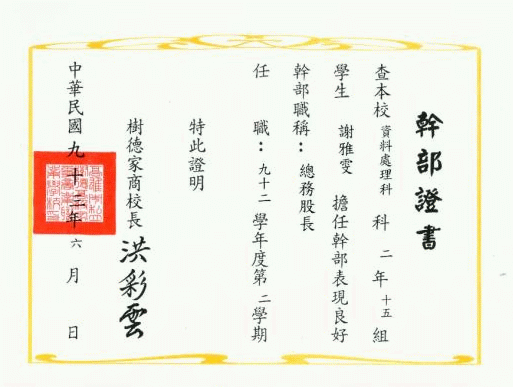 幹部證書
查本校 資料處理科 科 二 年 十五 組
學生 謝雅雯 擔任幹部表現良好
幹部職稱：總務股長
任職：九十二 學年度第 二 學期
特此證明
樹德家商校長 洪彩雲
中華民國 九十三 年 六 月 日